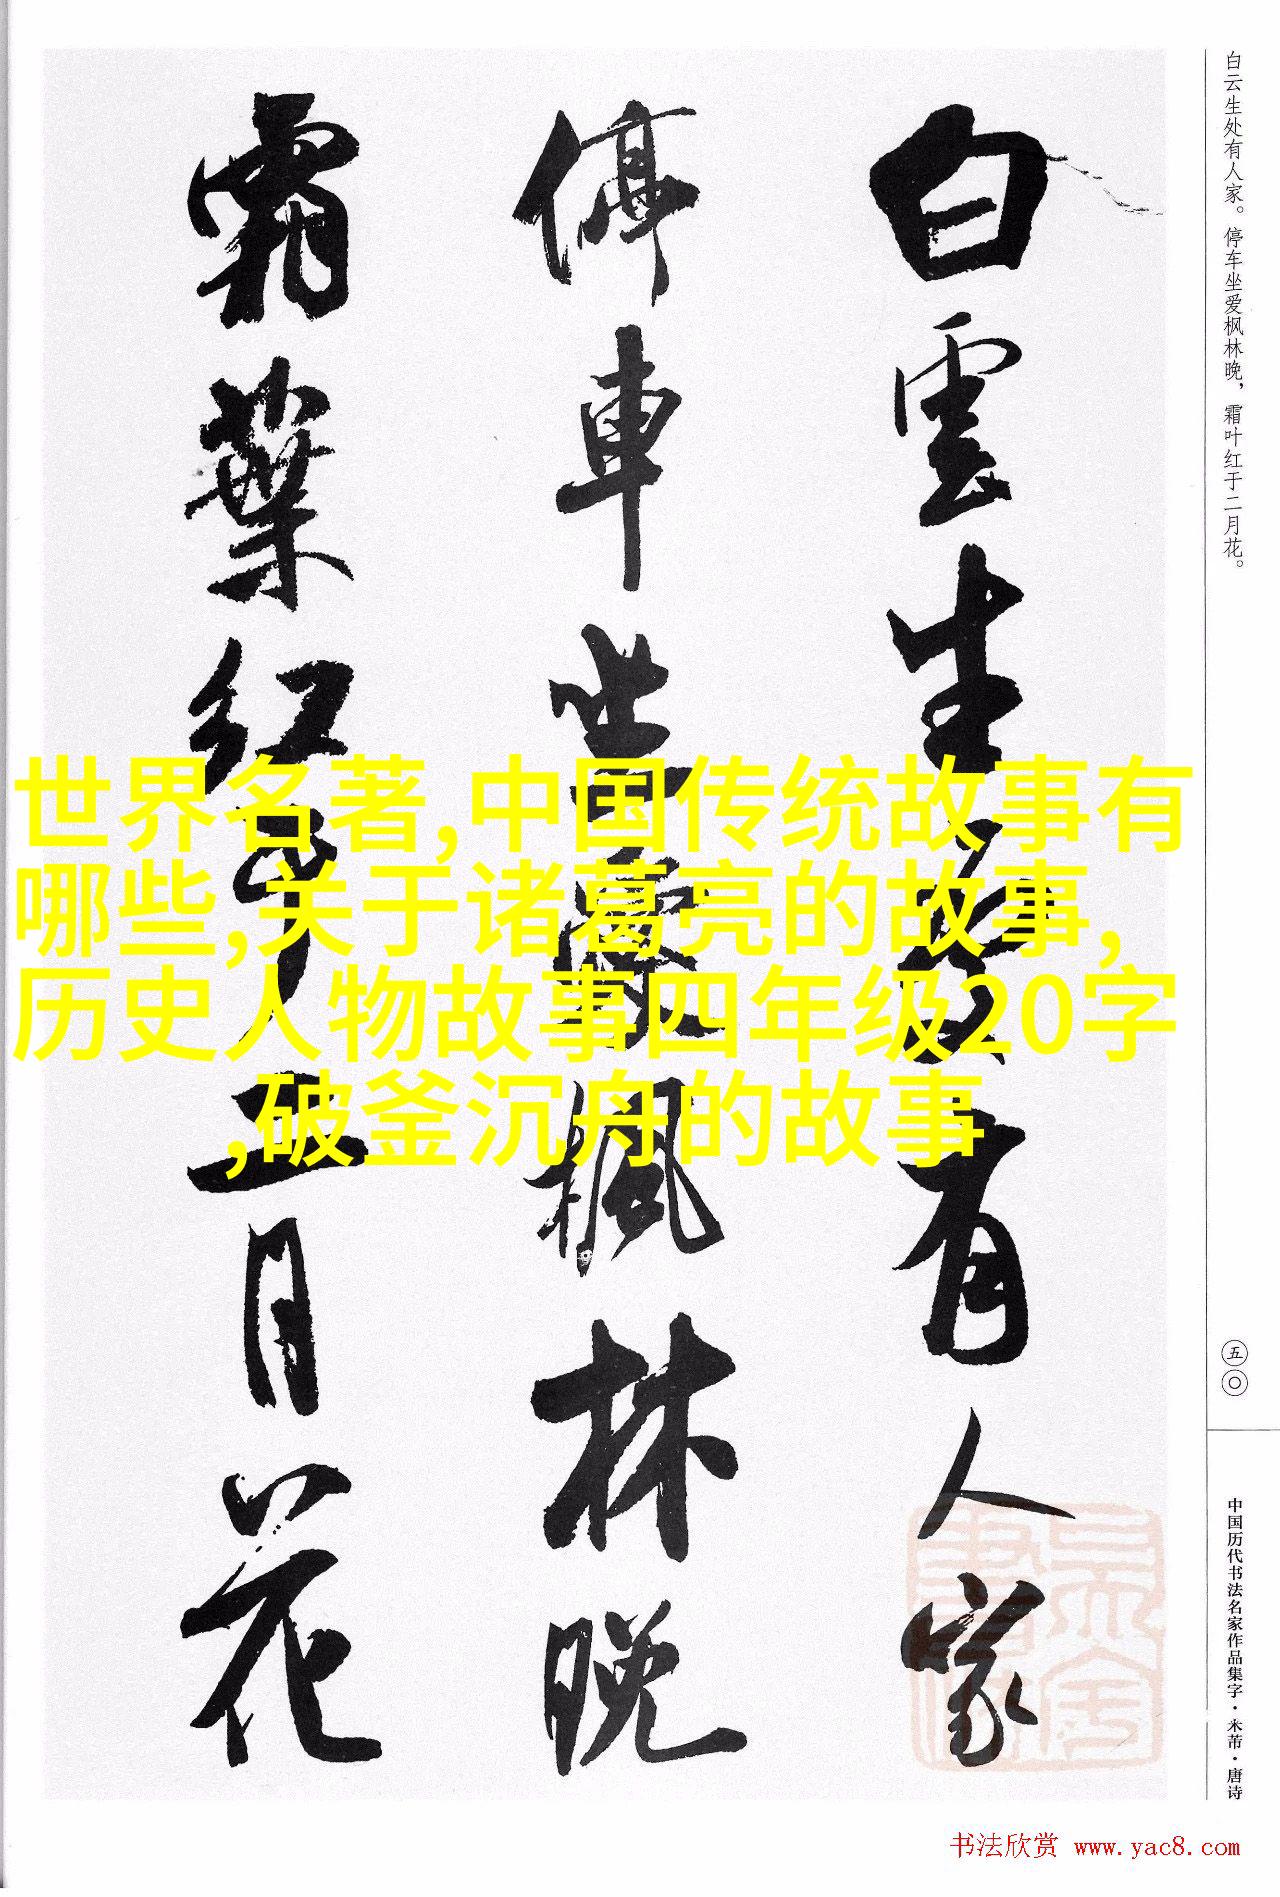 白云生处有人家。停车坐爱枫林晚，霜叶红于二月花。
白雲生處有人家
停車坐愛楓林晚
霜葉紅于二月花
世界名著,中国传统故事有
哪些,关于诸葛亮的故事,
历史人物故事四年级20字
,破釜沉舟的故事
五〇
中国历代书法名家作品集字·米芾·唐诗
书法欣赏 www.yac8.com